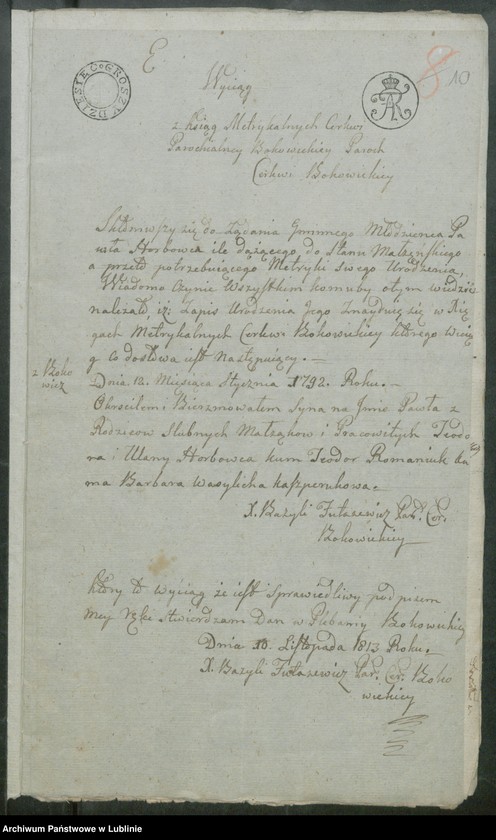 DZIESIĘC GROSZY
E
8 10
Wyciąg
z Xiąg Metrykalnych Cerkwi
Parochialney Bokowickiey Paroch
Cerkw. Bokowickiey
Skłoniwszy się do Żądania Gminnego Młodzienca Pa
wła Horbowca ile dążącego do Stanu Małżeńskiego
a przeto potrzebuiącego Metryki Swego Urodzenia,
Wiadomo Czynię Wszystkim komuby o tym wiedzieć
należało, iż: Zapis Urodzenia Jego Znayduie się w Xię
gach Metrykalnych Cerkw. Bokowickiey którego wycią
g Co do słowa iest Następuiący. —
z Boko
wicz
Dnia 12. Miesiąca Stycznia 1792. Roku. —
Okrzciłem i Bierzmowałem Syna na Jmie Pawła z
Rodziców Slubnych Małżąków i Pracowitych Teodo
ra i Ulany Horbowca kum Teodor Romaniuk ku
ma Barbara Wasylicha
X. Bazyli Par. Cer.
Bokowickiey
który to wyciąg że iest Sprawiedliwy podpisem
mey Ręki stwierdzam Dan w Plebanij Bokowickiey
Dnia 10. Listopada 1813 Roku.
X. Bazyli Par. Cer. Boko
wickiey
Archiwum Państwowe w Lublinie